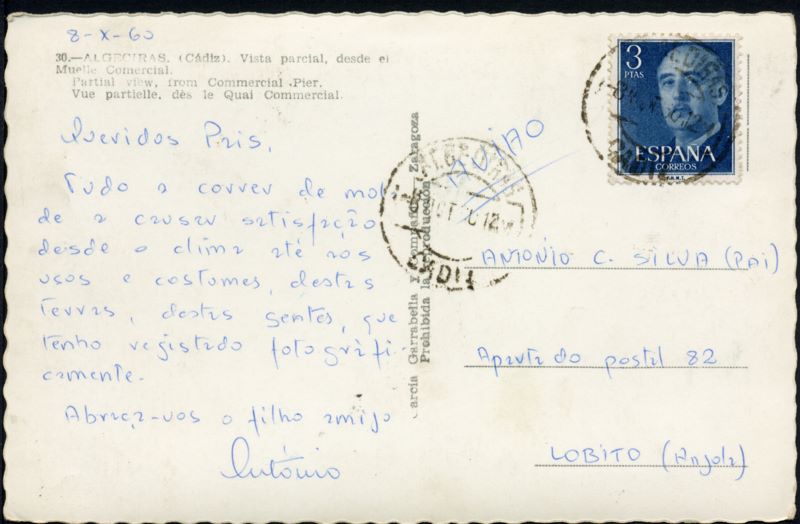 8-X-60
30.—ALGECIRAS. (Cádiz). Vista parcial, desde el
Muelle Comercial.
Partial view, from Commercial Pier.
Vue partielle, dès le Quai Commercial.
Queridos Pais,
Tudo a correr de mol
de a causar satisfação
desde o clima até aos
usos e costumes, destas
terras, destas gentes, que
tenho registado fotográfi-
camente.
Abraça-vos o filho amigo
António
García Garrabella Y Compañía - Zaragoza
Prohibida la reproducción
AVIÃO
3
PTAS
ESPAÑA
CORREOS
F.N.M.T.
ANTÓNIO C. SILVA (PAI)
Apartado postal 82
LOBITO (Angola)